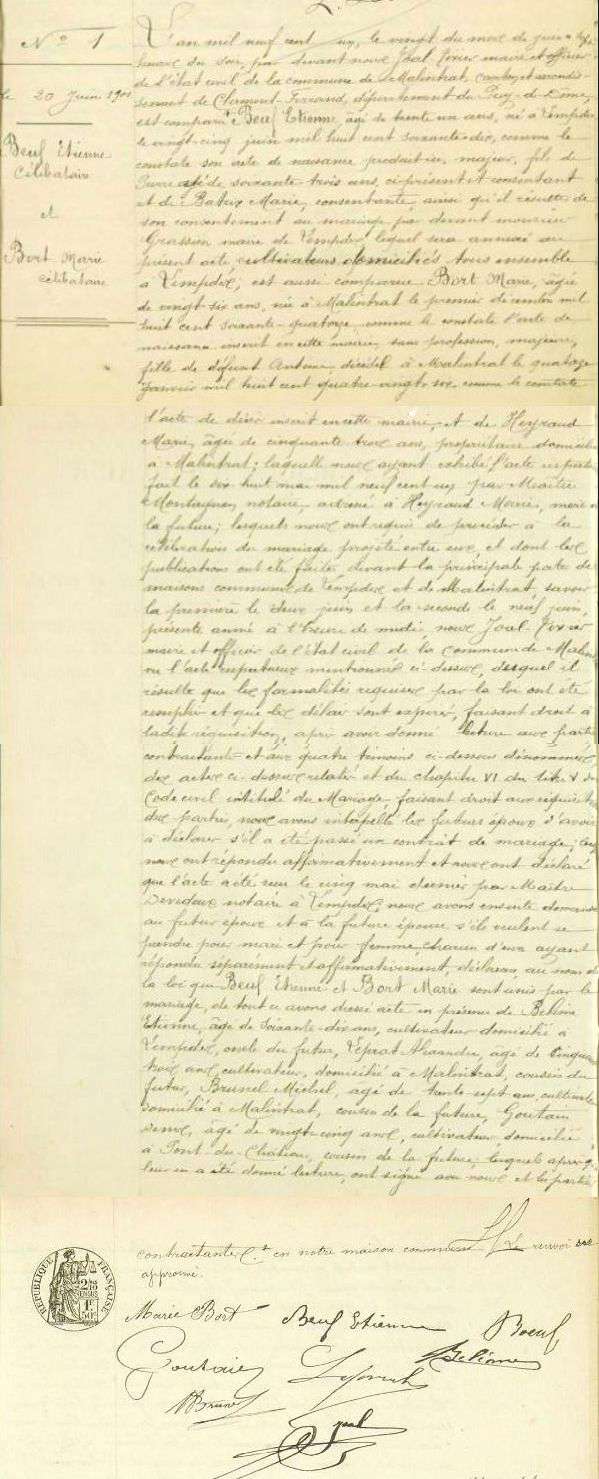 Nº 1
le 20 Juin 1901
Beuf Etienne
Célibataire
et
Bort Marie
célibataire
L'an mil neuf cent un, le vingt du mois de juin
heure du soir, par devant nous Joal maire et officier
de l'état civil de la commune de Malintrat, canton et arrondis-
sement de Clermont-Ferrand, département du Puy-de-Dôme,
est comparu Beuf Etienne, âgé de trente un ans, né à Lempdes
le vingt-cinq juin mil huit cent soixante-dix, comme le
constate son acte de naissance produit majeur, fils de
Pierre âgé de soixante trois ans, ci-présent et consentant
et de Marie, consentante, ainsi qu'il résulte de
son consentement au mariage par devant monsieur
Grasson maire de Lempdes lequel sera annexé au
présent acte cultivateurs domiciliés tous ensemble
à Lempdes; est aussi comparue Bort Marie, âgée
de vingt-six ans, née à Malintrat le premier décembre mil
huit cent soixante-quatorze, comme le constate l'acte de
naissance inscrit en cette mairie, sans profession, majeure,
fille de défunt Antoine, décédé à Malintrat le quatorze
janvier mil huit cent quatre-vingt comme le constate
l'acte de décès inscrit en cette mairie, et de Heyraud
Marie, âgée de cinquante trois ans, propriétaire domiciliée
à Malintrat; laquelle nous ayant exhibé l'acte
fait le dix huit mai mil neuf cent un par Maître
notaire, adressé à Heyraud Marie, mère de
la future; lesquels nous ont requis de procéder à la
célébration du mariage projeté entre eux, et dont les
publications ont été faites devant la principale porte de
maisons communes de Lempdes et de Malintrat, savoir
la première le deux juin et la seconde le neuf juin,
présente année à l'heure de midi, nous Joal
maire et officier de l'état civil de la commune de Malin
vu l'acte respectueux mentionné ci-dessus, duquel il
résulte que les formalités requises par la loi ont été
remplies et que les délais sont expirés, faisant droit à
ladite réquisition, après avoir donné lecture aux parties
contractantes et aux quatre témoins ci-dessous dénommés,
des actes ci-dessus relatés et du chapitre VI du titre V du
Code civil intitulé du Mariage, faisant droit aux réquisit
des parties, nous avons interpellé les futurs époux d'avoir
à déclarer s'il a été passé un contrat de mariage; les
nous ont répondu affirmativement et nous ont déclaré
que l'acte a été reçu le cinq mai dernier par Maître
Devedeux notaire à Lempdes; nous avons ensuite demandé
au futur époux et à la future épouse s'ils veulent se
prendre pour mari et pour femme, chacun d'eux ayant
répondu séparément et affirmativement, déclarons au nom de
la loi que Beuf Etienne et Bort Marie sont unis par le
mariage, de tout ce avons dressé acte en présence de Bélime
Etienne, âgé de soixante-dix ans, cultivateur domicilié à
Lempdes, oncle du futur, Alexandre, âgé de cinquante
trois ans, cultivateur, domicilié à Malintrat, cousin du
futur, Brunel Michel, âgé de trente sept ans, cultivateur
domicilié à Malintrat, cousin de la future, Goutain
âgé de vingt-cinq ans, cultivateur domicilié
à Pont-du-Château, cousin de la future; lesquels après q.
leur en a été donné lecture, ont signé avec nous et les parties
contractantes. en notre maison commune renvoi
approuvé.
RÉPUBLIQUE FRANÇAISE
Marie Bort
Beuf Etienne
Boeuf
Goutain
Bélime
Brunel
Joal